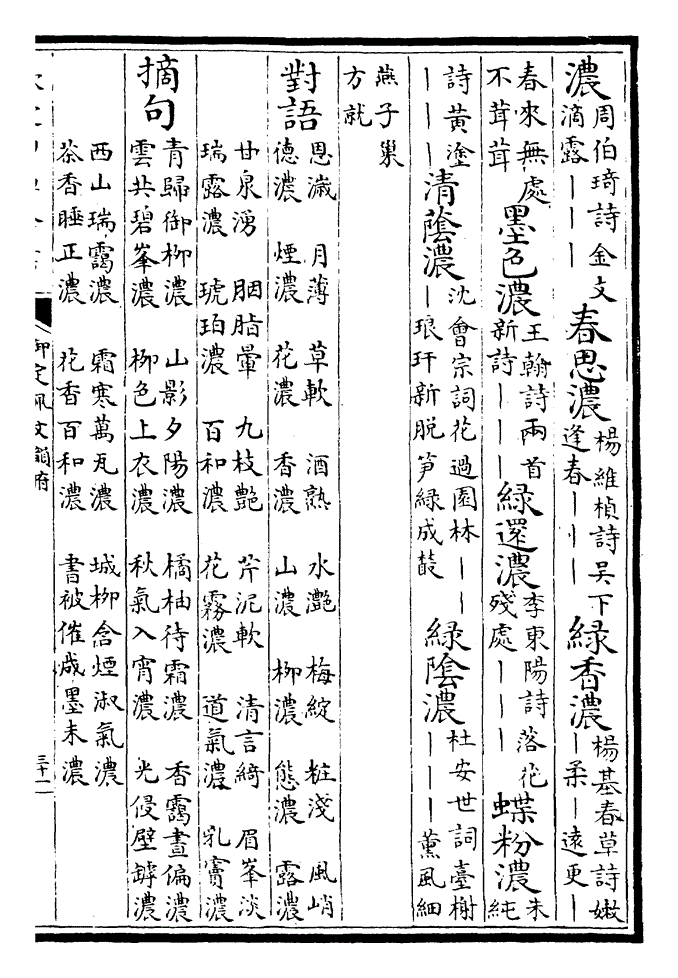 濃 周伯琦詩金文滴露｜｜｜ 春思濃 楊維楨詩吳下逢春｜｜｜ 綠香濃 楊基春草詩嫩｜柔｜遠更｜
春來無處不茸茸 墨色濃 王翰詩兩首新詩｜｜｜ 綠還濃 李東陽詩落花殘處｜｜｜ 蝶粉濃 朱純
詩黃塗｜｜｜ 清蔭濃 沈會宗詞花過園林｜｜｜琅玕新脫笋綠成鼓 綠陰濃 杜安世詞臺榭｜｜｜薰風細
燕子巢方就
對語 恩濊 月薄 草軟 酒熟 水灔 梅綻 粧淺 風峭
德濃 煙濃 花濃 香濃 山濃 柳濃 態濃 露濃
甘泉湧 胭脂暈 九枝艷 芹泥軟 清言綺 眉峯淡
瑞露濃 琥珀濃 百和濃 花霧濃 道氣濃 乳竇濃
摘句 青歸御柳濃 山影夕陽濃 橘柚待霜濃 香靄晝偏濃
雲共碧峯濃 柳色上衣濃 秋氣入宵濃 光侵壁罅濃
西山瑞靄濃 霜寒萬瓦濃 城柳含煙淑氣濃
茶香睡正濃 花香百和濃 書被催成墨未濃
御定佩文韻府
三十一